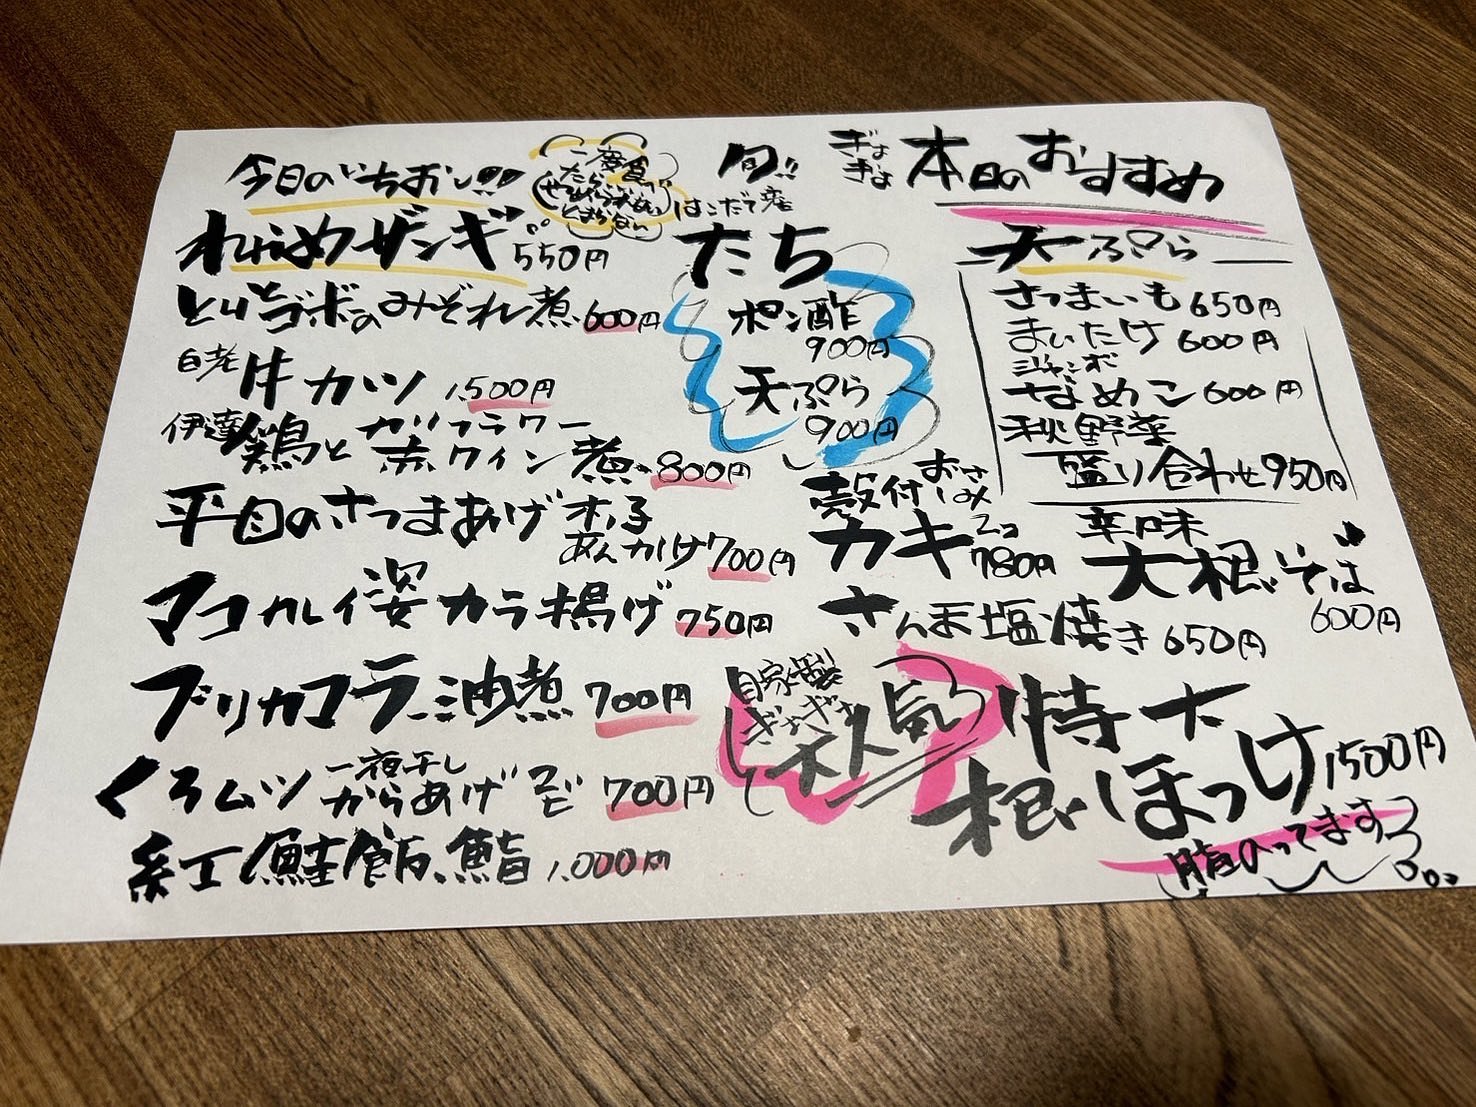 ぎょぎょ 本日のおすすめ
天ぷら
さつまいも 650円
まいたけ 600円
ジャンボ
なめこ 600円
秋野菜
盛り合わせ 950円
辛味
大根そば
600円
旬!!
はこだて産
たち
ポン酢
900円
天ぷら
900円
殻付 おさしみ
カキ 2コ
780円
さんま塩焼き 650円
特大
根ほっけ 1500円
脂のってます
自家製
ぎょぎょ
大人気
今日のいちおし!!
一度食べ
たら
とまらない
わらめザンギ 550円
とりとゴボウのみぞれ煮 600円
白老
牛カツ 1,500円
伊達鶏とカリフラワー
赤ワイン煮 800円
平目のさつまあげ
あんかけ 700円
マコカレイ姿カラ揚げ 750円
ブリカマコラー油煮 700円
くろムツ一夜干し
からあげ 2ピ 700円
紅鮭飯鮨 1,000円